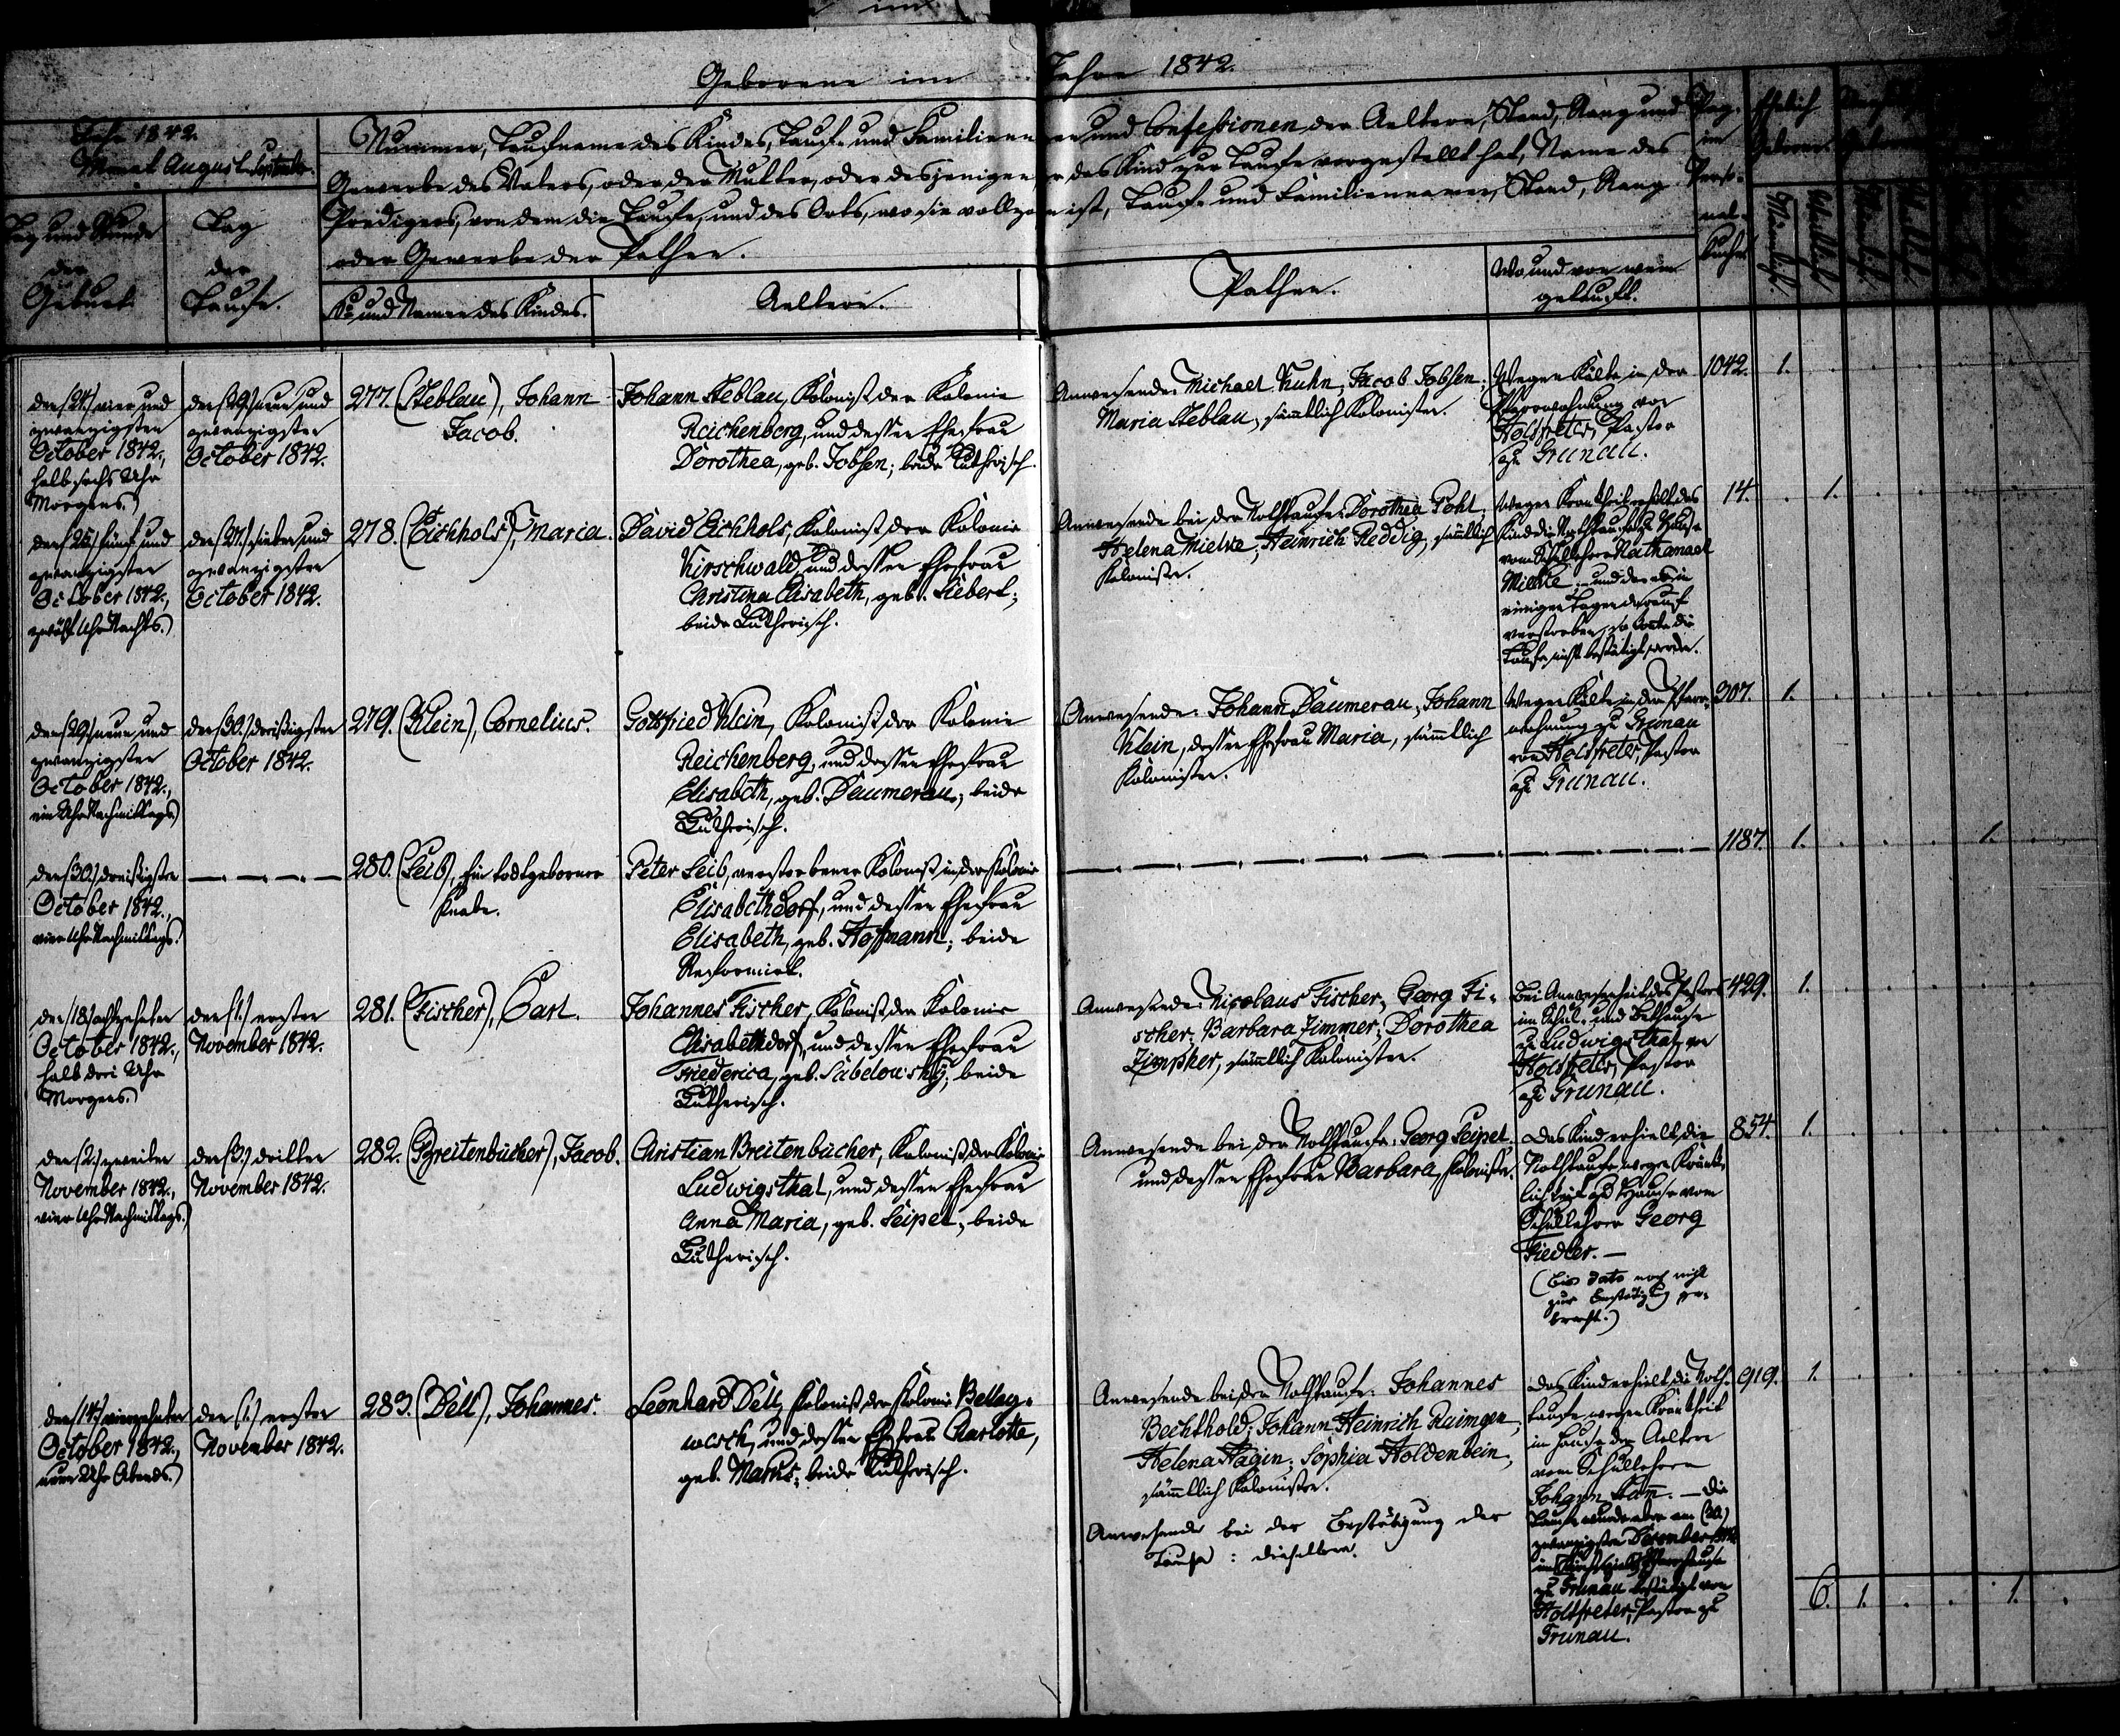 Geborene im Jahre 1842.
Jahr 1842.
Monat August. September.
Nummer, Taufname des Kindes, Tauf- und Familiennamen und Confessionen der Aeltern, Stand, Rang und
Gewerbe des Vaters, oder der Mutter, oder desjenigen, der das Kind zur Taufe vorgestellt hat, Name des
Predigers, von dem die Taufe, und des Orts, wo sie vollzogen ist, Tauf- und Familiennamen, Stand, Rang
oder Gewerbe der Pathen.
Pag.
im
Perso-
nal-
buche.
Ehelich
Geboren.
Männlich.
Weiblich.
Männlich.
Weiblich.
Tag und Stunde
der
Geburt.
Tag
der
Taufe.
No und Namen des Kindes.
Aeltern.
Pathen.
Wo und von wem
getauft.
den (24.) vier und
zwanzigsten
October 1842.,
halb sechs Uhr
Morgens.
den (29.) neun und
zwanzigsten
October 1842.
277. (Steblau), Johann
Jacob.
Johann Steblau, Kolonist der Kolonie
Reichenberg, und dessen Ehefrau
Dorothea, geb. Jobsen; beide Lutherisch.
Anwesende: Michael Kuhn, Jacob Jobsen;
Maria Steblau, sämtlich Kolonisten.
Wegen Kälte in der
Pfarrwohnung von
Holtfreter, Pastor
zu Grunau.
1042. 1.
den (25.) fünf und
zwanzigsten
October 1842.,
zwölf Uhr Nachts.
den (27.) sieben und
zwanzigsten
October 1842.
278. (Eichholz), Maria.
David Eichholz, Kolonist der Kolonie
Kirschwald, und dessen Ehefrau
Christina Elisabeth, geb. Siebert;
beide Lutherisch.
Anwesende bei der Nothtaufe: Dorothea Pohl,
Helena Mielke; Heinrich Reddig, sämtlich
Kolonisten.
Wegen Krankheit erhielt das
Kind die Nothtaufe zu Hause
vom Schullehrer Nathanael
Mielke; und da es in
einigen Tagen darauf
verstorben, so konnte die
Taufe nicht bestätigt werden.
14. 1.
den (29.) neun und
zwanzigsten
October 1842.,
ein Uhr Nachmittags.
den (30.) dreißigsten
October 1842.
279. (Klein), Cornelius.
Gottfried Klein, Kolonist der Kolonie
Reichenberg, und dessen Ehefrau
Elisabeth, geb. Daumerau; beide
Lutherisch.
Anwesende: Johann Daumerau, Johann
Klein, dessen Ehefrau Maria, sämmtlich
Kolonisten.
Wegen Kälte in der Pfarr-
wohnung zu Grunau
von Holtfreter, Pastor
zu Grunau.
307. 1.
den (30.) dreißigsten
October 1842.,
vier Uhr Nachmittags.
280. (Leib), Ein todtgeborner
Knabe.
Peter Leib, verstorbener Kolonist in der Kolonie
Elisabethdorf, und dessen Ehefrau
Elisabeth, geb. Hoffmann; beide
Reformirt.
1187. 1. 1.
den (18.) achtzehnten
October 1842.,
halb drei Uhr
Morgens.
den (1.) ersten
November 1842.
281. (Fischer), Carl.
Johannes Fischer, Kolonist der Kolonie
Elisabethdorf, und dessen Ehefrau
Friederica, geb. Sabelowsky; beide
Lutherisch.
Anwesende: Nicolaus Fischer, Georg Fi-
scher; Barbara Zimmer; Dorothea
Zimpher, sämtlich Kolonisten.
Bei Anwesenheit des Pastors
im Schul- und Bethause
zu Ludwigsthal von
Holtfreter, Pastor
zu Grunau.
429. 1.
den (2.) zweiten
November 1842.,
vier Uhr Nachmittags.
den (3.) dritten
November 1842.
282. (Breitenbücher), Jacob.
Christian Breitenbücher, Kolonist der Kolonie
Ludwigsthal, und dessen Ehefrau
Anna Maria, geb. Seipel; beide
Lutherisch.
Anwesende bei der Nothtaufe: Georg Seipel
und dessen Ehefrau Barbara, Kolonisten.
Das Kind erhielt die
Nothtaufe wegen Kränk-
lichkeit zu Hause vom
Schullehrer Georg
Fiedler. —
(Bis dato noch nicht
zur Bestätigung ge-
bracht.)
854. 1.
den (14.) vierzehnten
October 1842.,
neun Uhr Abends.
den (1.) ersten
November 1842.
283. (Dell), Johannes.
Leonhard Dell, Kolonist der Kolonie Bellag-
wersh, und dessen Ehefrau Charlotte,
geb. Marus; beide Lutherisch.
Anwesende bei der Nothtaufe: Johannes
Bechthold; Johann Heinrich Raimgen,
Helena Hagin; Sophia Holdenbein,
sämtlich Kolonisten.
Anwesende bei der Bestätigung der
Taufe: dieselben.
Das Kind erhielt die Noth-
taufe wegen Krankheit
im Hause der Aeltern
vom Schullehrer
Johann Kam̅. — Die
Taufe wurde aber am (20.)
zwanzigsten December
zu Grunau bestätigt von
Holtfreter, Pastor zu
Grunau.
919. 1.
6. 1. . . 1. .